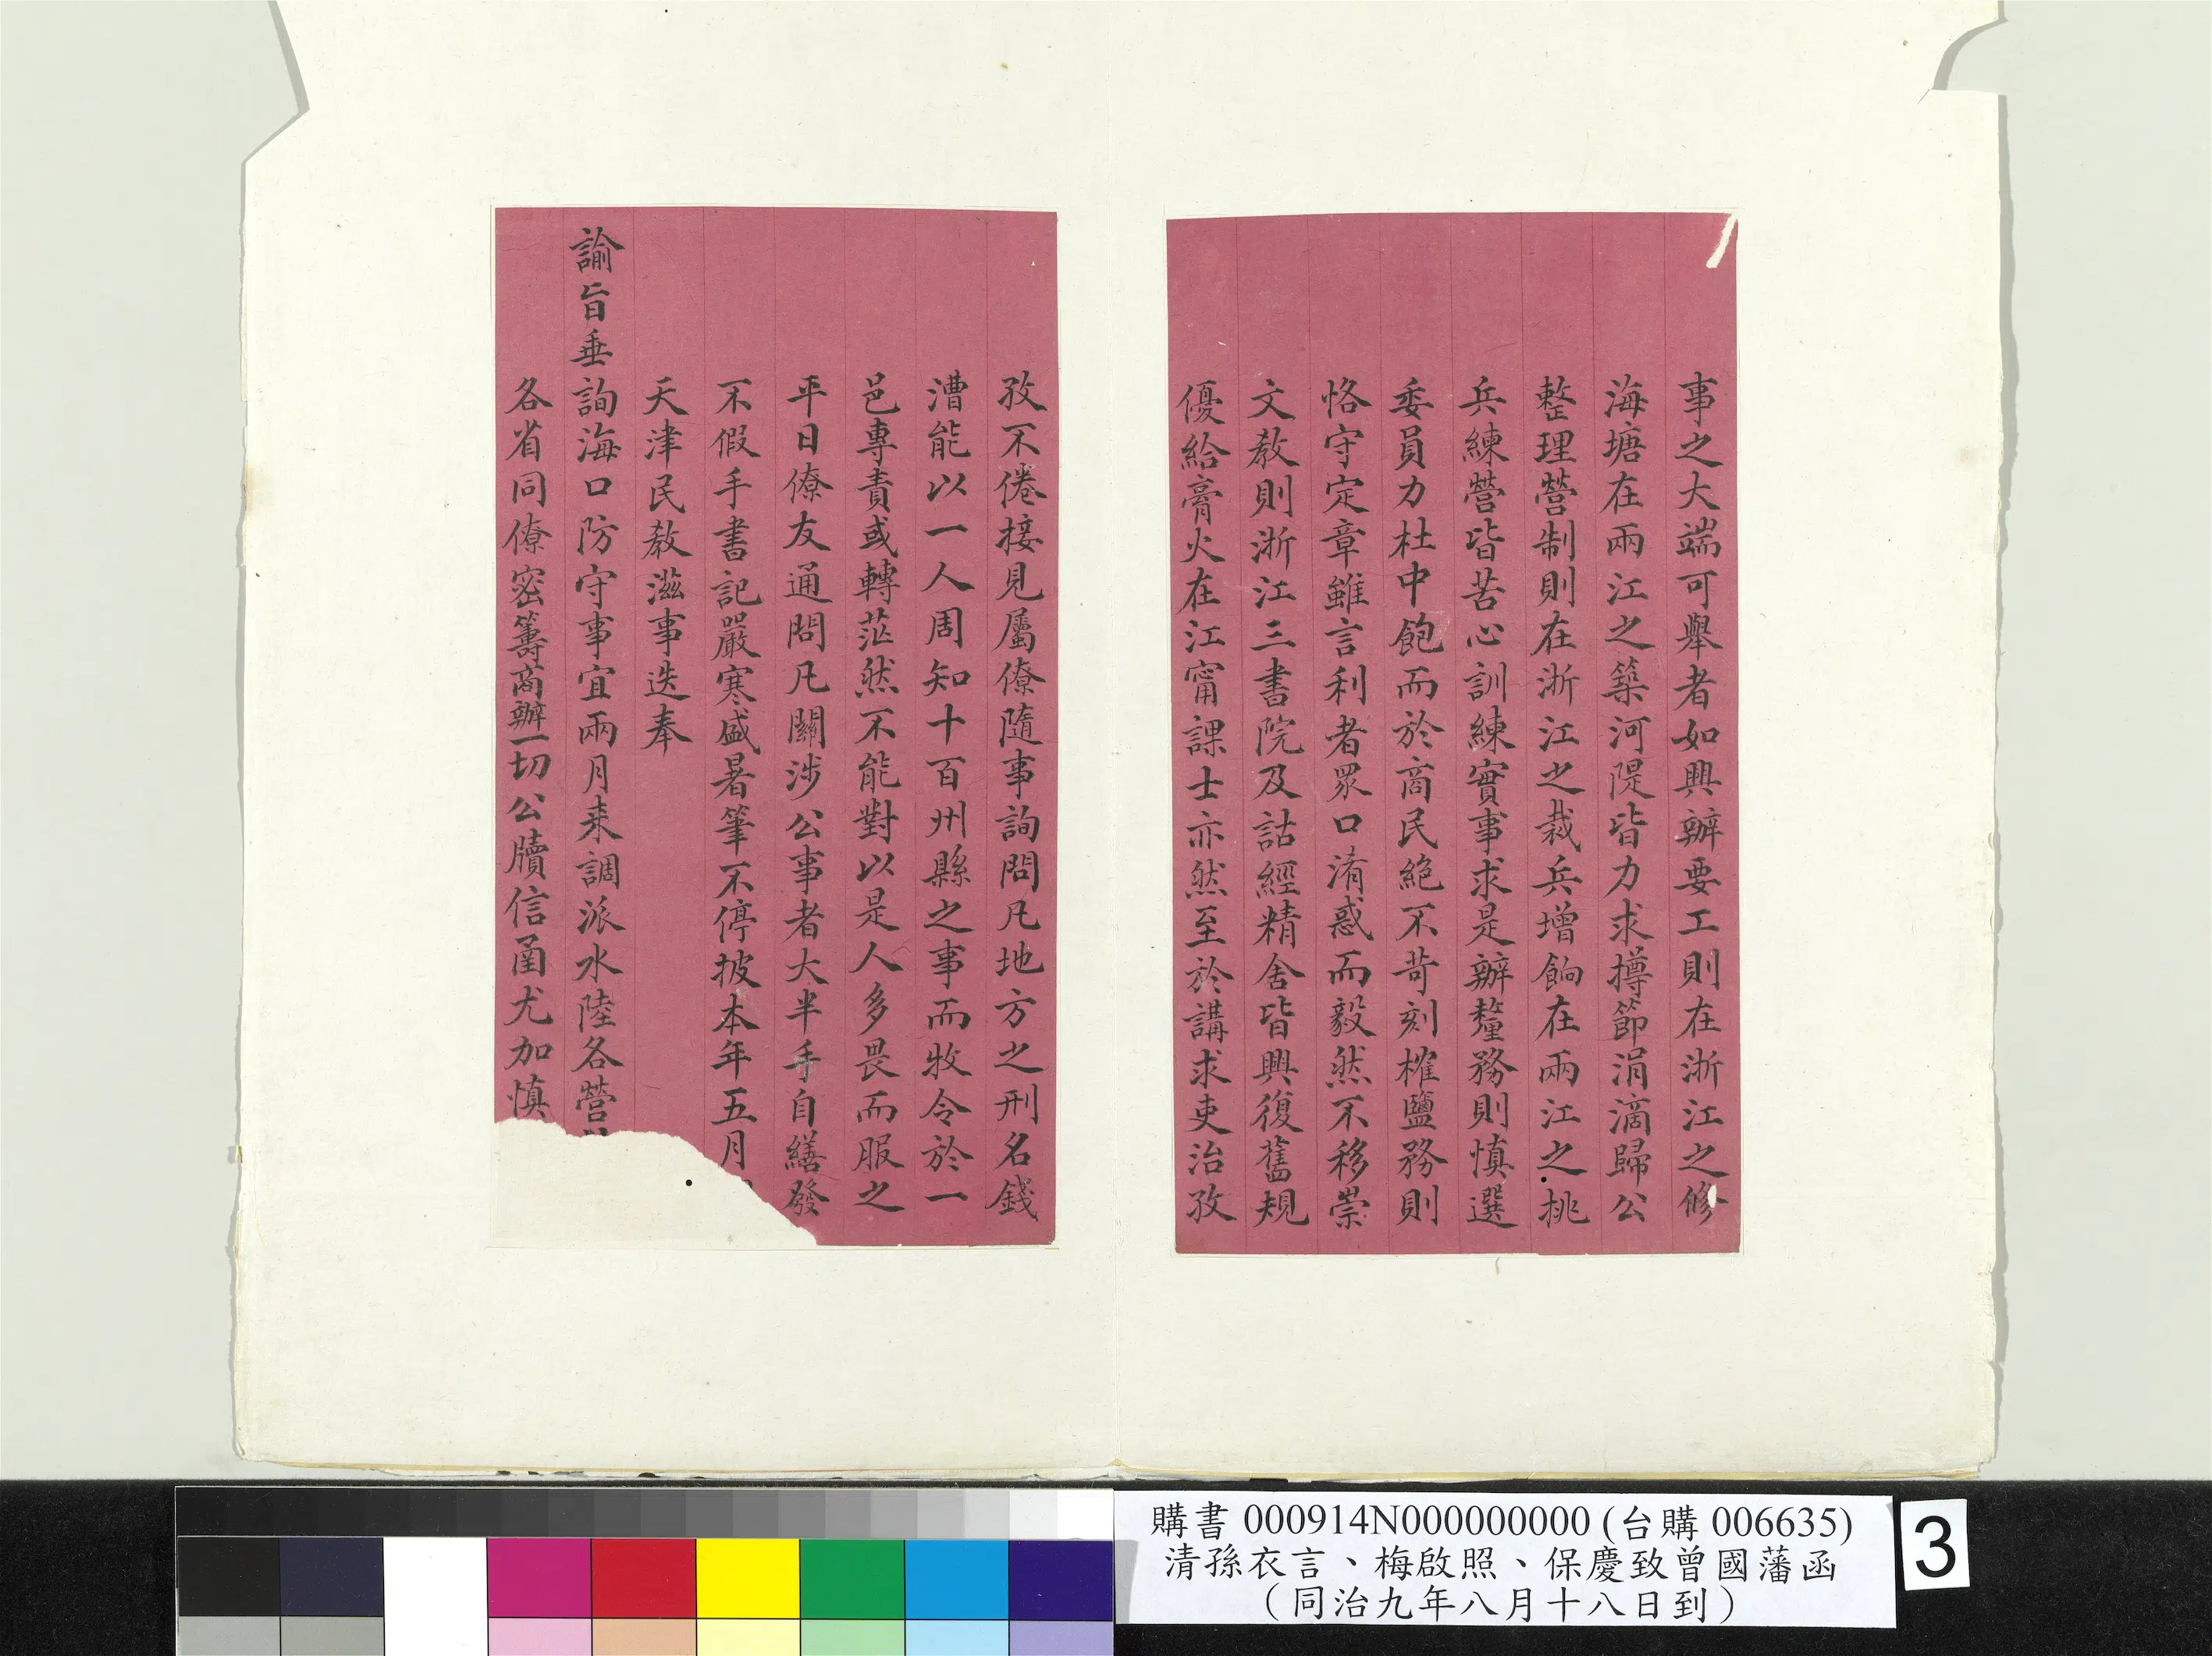 事之大端可舉者如興辦要工則在浙江之修
海塘在兩江之築河隄皆力求撙節涓滴歸公
整理營制則在浙江之裁兵增餉在兩江之挑
兵練營皆苦心訓練實事求是辦釐務則慎選
委員力杜中飽而於商民絕不苛刻榷鹽務則
恪守定章雖言利者眾口淆惑而毅然不移崇
文教則浙江三書院及詁經精舍皆興復舊規
優給膏火在江甯課士亦然至於講求吏治孜
孜不倦接見屬僚隨事詢問凡地方之刑名錢
漕能以一人周知十百州縣之事而牧令於一
邑專責或轉茫然不能對以是人多畏而服之
平日僚友通問凡關涉公事者大半手自繕發
不假手書記嚴寒盛暑筆不停披本年五月
天津民教滋事迭奉
諭旨垂詢海口防守事宜兩月來調派水陸各營
各省同僚密籌商辦一切公牘信函尤加慎
購書 000914N000000000 (台購 006635)
清孫衣言、梅啟照、保慶致曾國藩函
（同治九年八月十八日到）
3